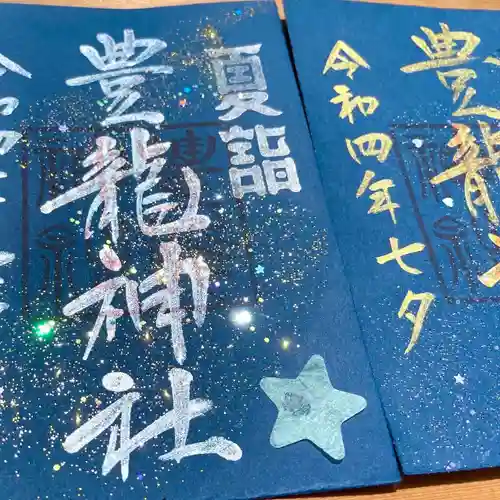 令和四年七夕
豊龍
夏詣
豊龍神社
令和